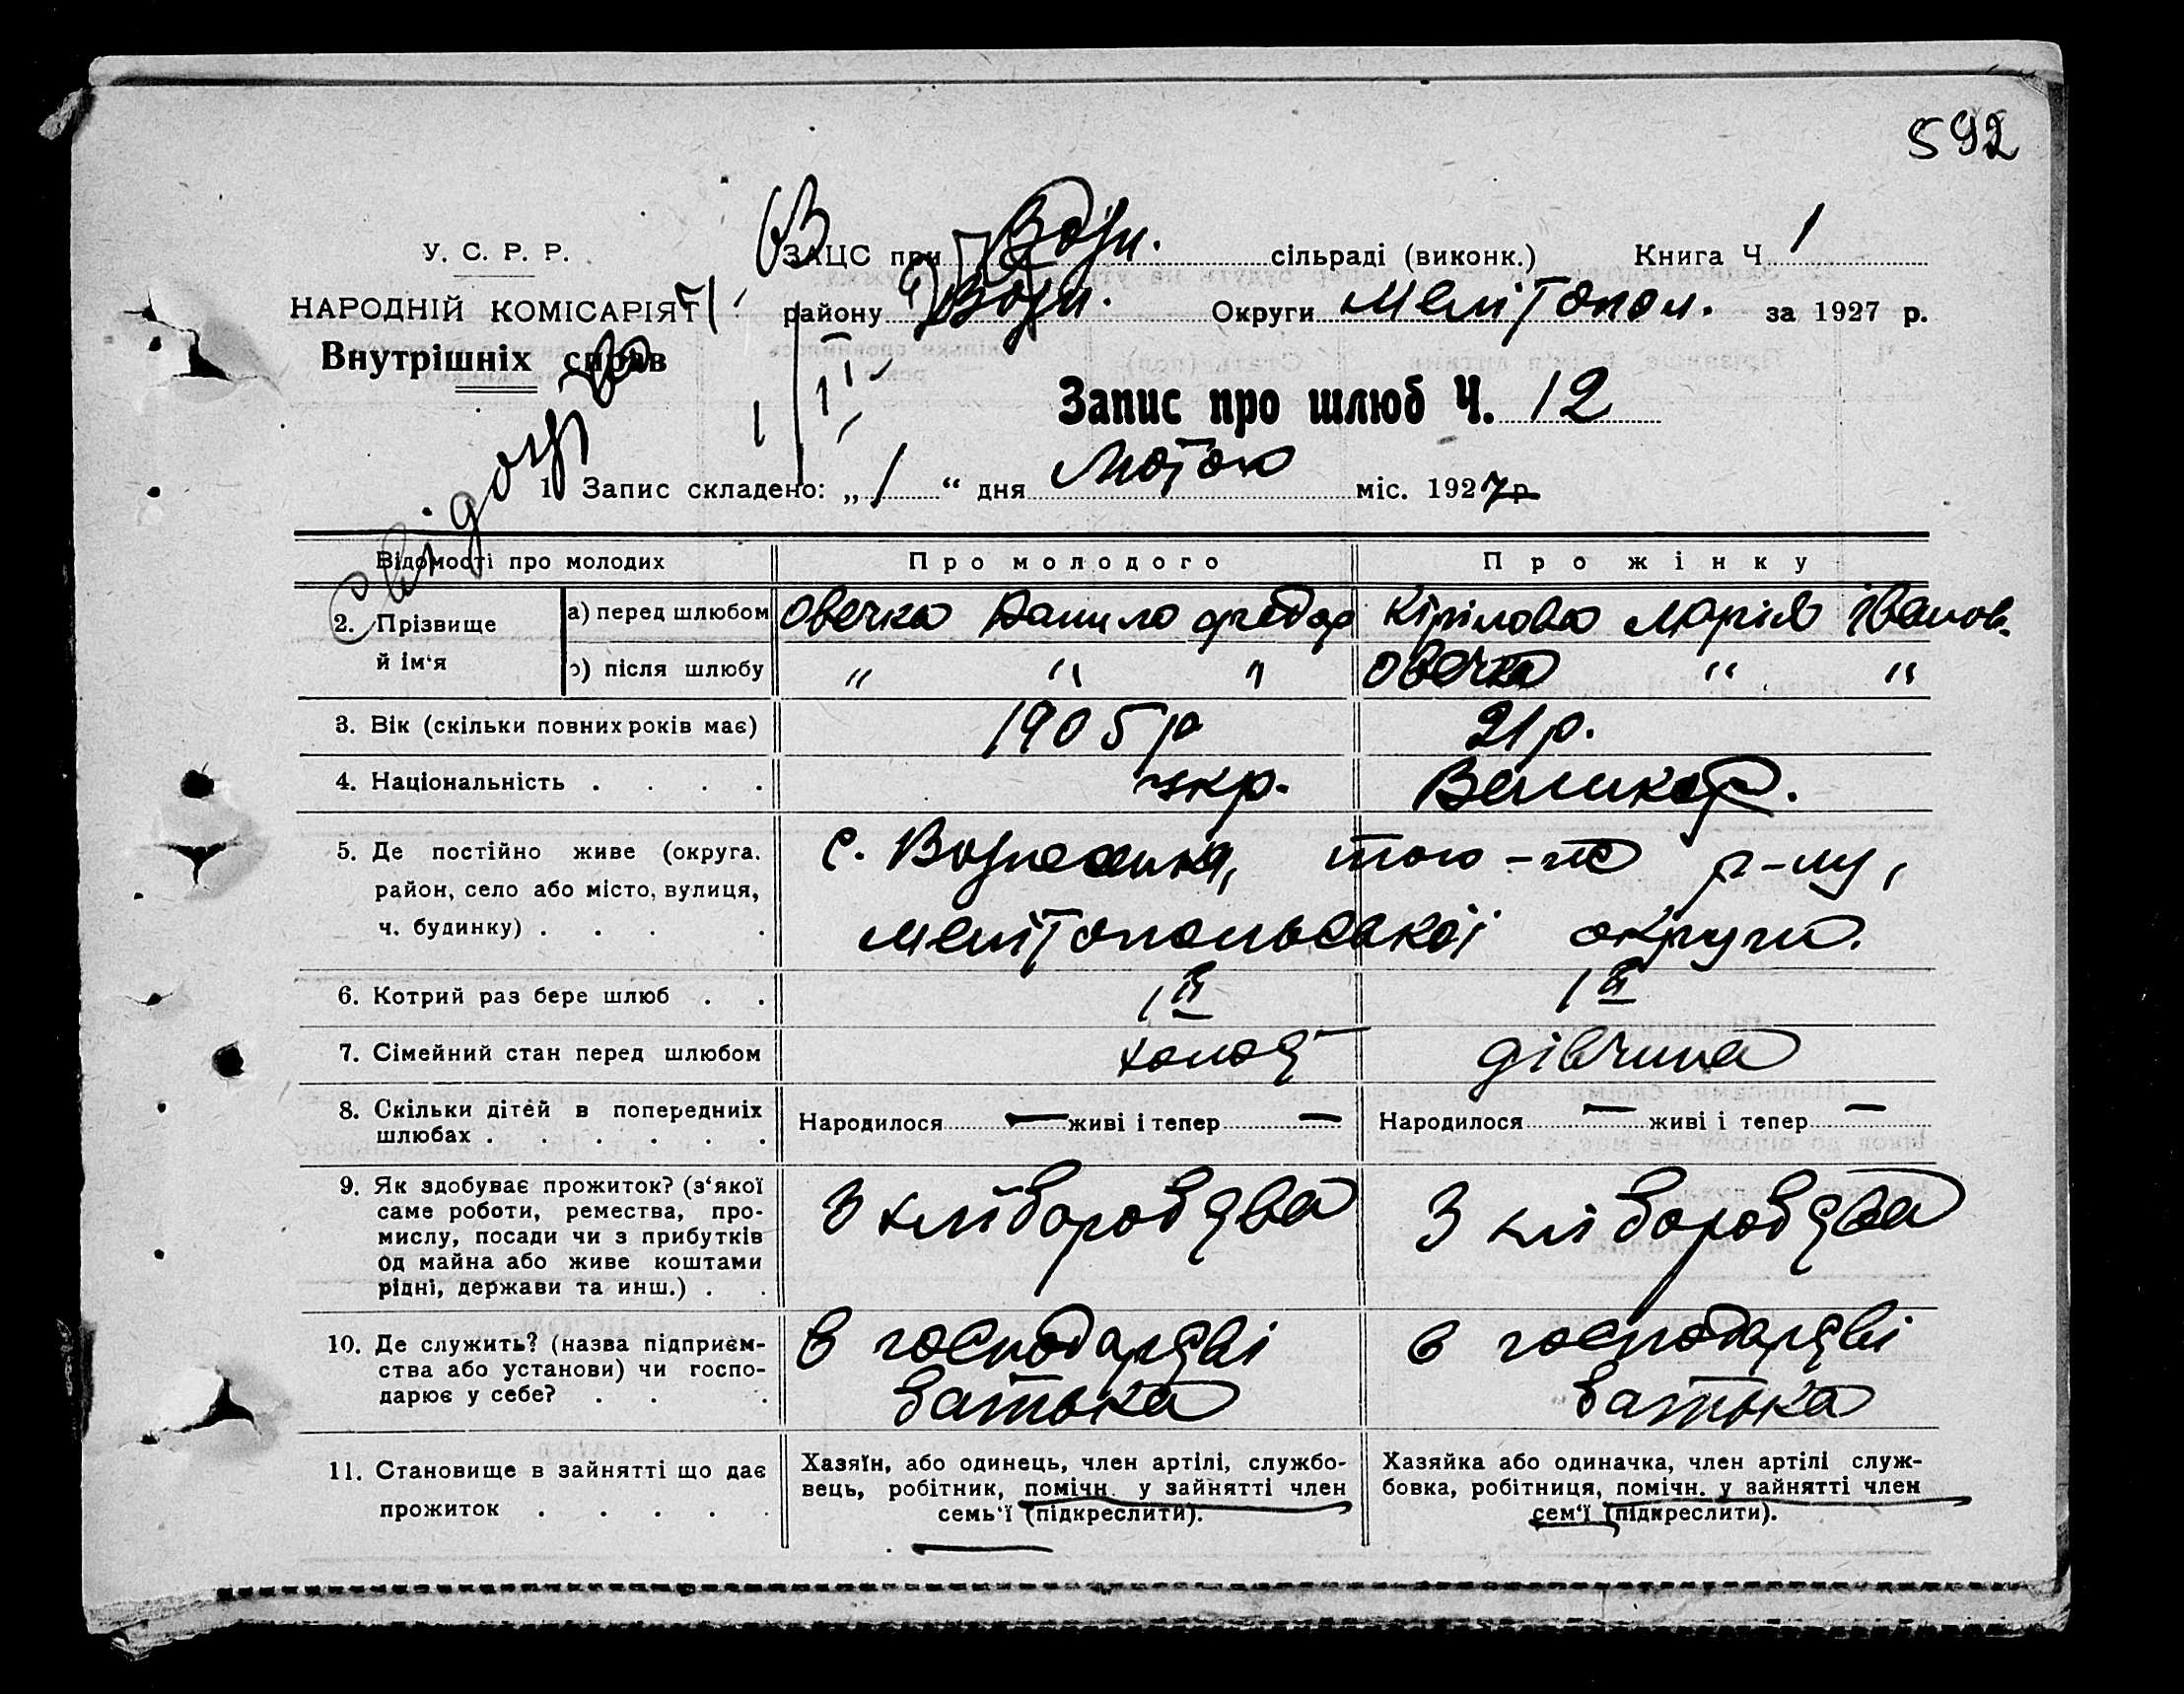 592
У. С. Р. Р.
НАРОДНІЙ КОМІСАРІЯТ
Внутрішніх справ
ЗАЦС при Возн. сільраді (виконк.) Книга Ч 1
району Возн. Округи Мелітопол. за 1927 р.
Запис про шлюб Ч. 12
1 Запис складено: „ 1 “ дня Лютого міс. 1927 р
Відомості про молодих Про молодого Про жінку
2. Прізвище й ім‘я
а) перед шлюбом Овечка Данило Федор Кірілова Марія Іванов.
б) після шлюбу " " " Овечка " "
3. Вік (скільки повних років має) 1905 р 21 р.
4. Національність . . . . укр. Великор.
5. Де постійно живе (округа. с. Вознесенка, того-же р-ну,
район, село або місто, вулиця,
ч. будинку) . . . . Мелітопольської округи.
6. Котрий раз бере шлюб . . 1й 1й
7. Сімейний стан перед шлюбом холост дівчина
8. Скільки дітей в попередниіх
шлюбах . . . . . . Народилося — живі і тепер — Народилося — живі і тепер —
9. Як здобуває прожиток? (з‘якої
саме роботи, ремества, про-
мислу, посади чи з прибутків
од майна або живе коштами
рідні, держави та инш.) . .
З хліборобства З хліборобства
10. Де служить? (назва підприєм-
ства або установи) чи госпо-
дарює у себе? . . .
в господарстві в господарстві
батька батька
11. Становище в зайнятті що дає
прожиток . . . . .
Хазяїн, або одинець, член артілі, службо-
вець, робітник, помічн. у зайнятті член
семь‘ї (підкреслити).
Хазяйка або одиначка, член артілі служ-
бовка, робітниця, помічн. у зайнятті член
сем‘ї (підкреслити).